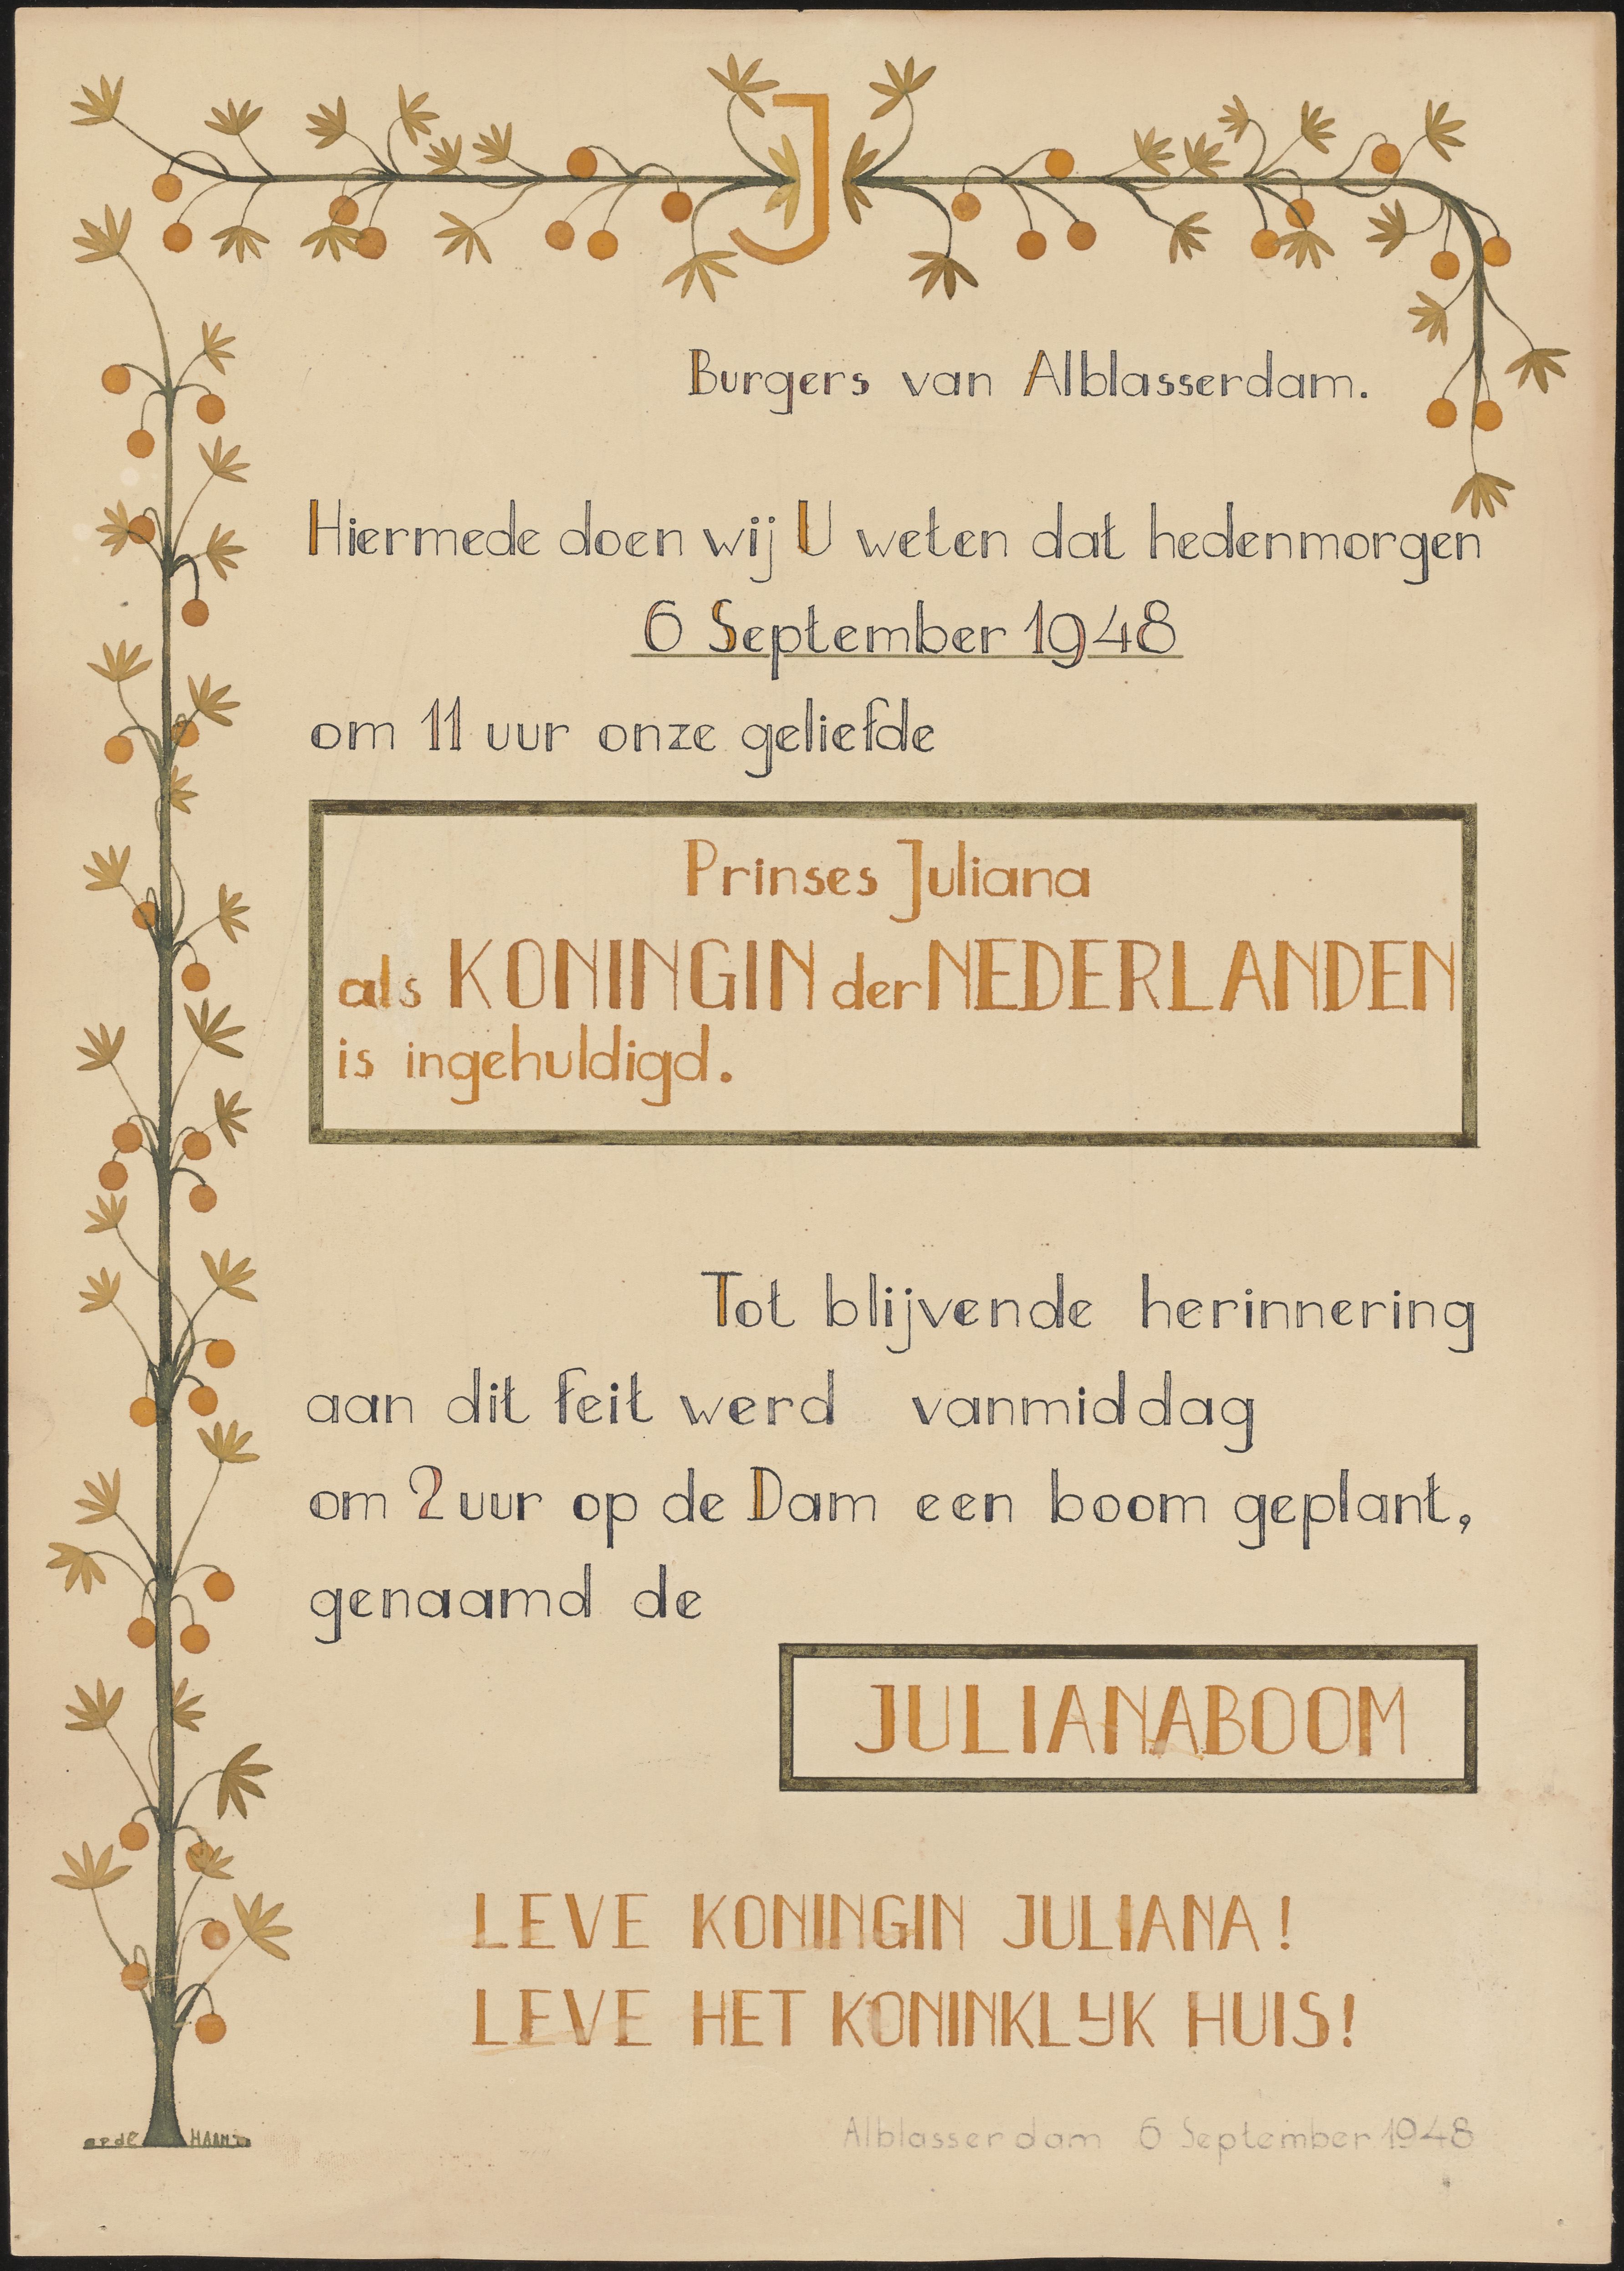 J
Burgers van Alblasserdam.
Hiermede doen wij U weten dat hedenmorgen
6 September 1948
om 11 uur onze geliefde
Prinses Juliana
als KONINGIN der NEDERLANDEN
is ingehuldigd.
Tot blijvende herinnering
aan dit feit werd vanmiddag
om 2 uur op de Dam een boom geplant,
genaamd de
JULIANABOOM
LEVE KONINGIN JULIANA!
LEVE HET KONINKLIJK HUIS!
Alblasserdam 6 September 1948